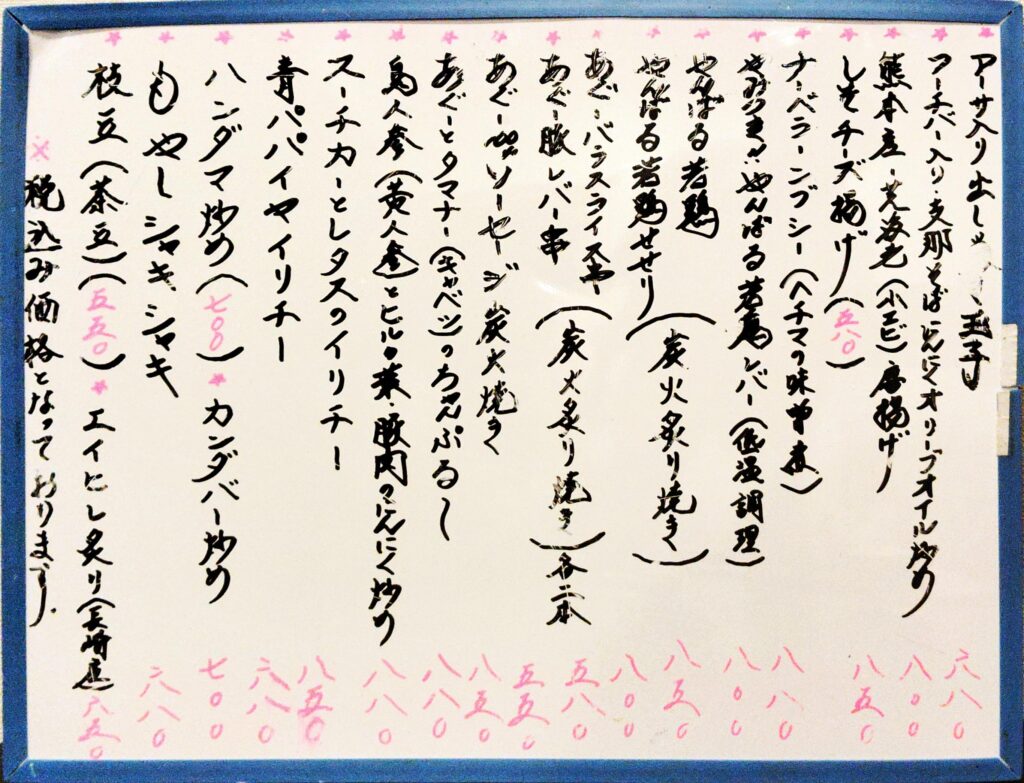 アーサ入り出し 玉子 六八〇
アーチバー入り・支那そばにんにくオリーブオイル炒め 八〇〇
熊本産・芝海老(小エビ)唐揚げ 八五〇
しそチーズ揚げ(五八〇)
ナーベラーンブシー(ヘチマの味噌煮) 八八〇
やんばる若鶏レバー(低温調理) 八〇〇
やんばる若鶏 八五〇
やんばる若鶏せせり(炭火炙り焼き) 八〇〇
あぐーバラスライス串 五八〇
あぐー豚レバー串(炭火炙り焼き)各二本 五五〇
あぐーソーセージ炭火焼き 八五〇
あぐーとタマナー(キャベツ)のちゃんぷるー 八八〇
島人参(黄人参)とヒル葉・豚肉のにんにく炒め 八八〇
スーチカーとレタスのイリチー 八五〇
青パパイヤイリチー 六八〇
ハンダマ炒め(七〇〇)★カンダバー炒め 七〇〇
もやしシャキシャキ 六八〇
枝豆(茶豆)(五五〇)★エイヒレ炙り(長崎産) 六五〇
※税込み価格となっております。